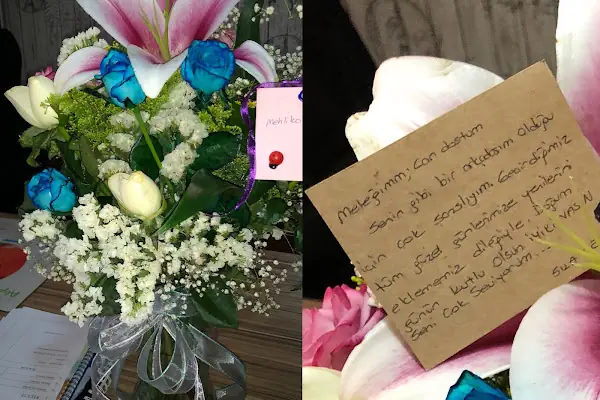 Mehlika
Meleğimm; Can dostum
Senin gibi bir arkadaşım olduğu
için çok şanslıyım. Geçirdiğimiz
tüm güzel günlerimize yenilerini
eklememiz dileğiyle. Doğum
günün kutlu olsun iyiki varsın
Seni Çok Seviyorum..